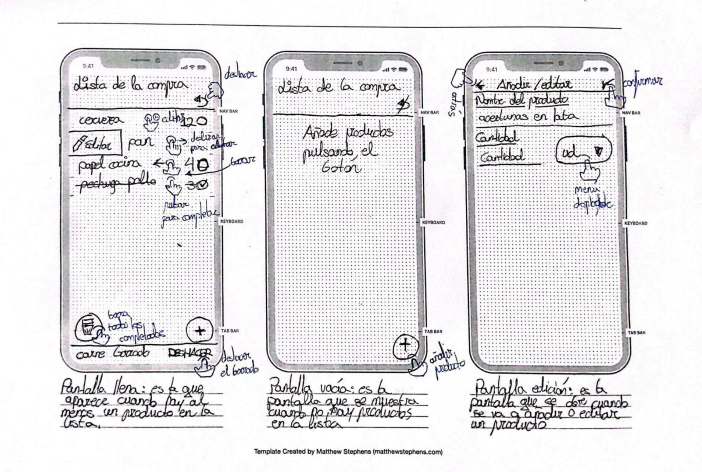 9:41
Lista de la compra
deshacer
NAV BAR
cerveza
editar
pan
deslizar
para
papel cocina
4
borrar
pechuga pollo
3
pulsar
para completar
KEYBOARD
borra
todos los
completados
+
TAB BAR
carne borrado DESHACER
deshacer
el borrado
Pantalla llena: es la que
aparece cuando hay al
menos un producto en la
lista.
9:41
Lista de la compra
NAV BAR
Añade productos
pulsando el
botón
KEYBOARD
TAB BAR
+
añadir
producto
Pantalla vacía: es la
pantalla que se muestra
cuando no hay productos
en la lista
9:41
atrás
Añadir/editar
confirmar
Nombre del producto
NAV BAR
aceitunas en lata
Cantidad
Cantidad
ud
menú
desplegable
KEYBOARD
TAB BAR
Pantalla edición: es la
pantalla que se abre cuando
se va a añadir o editar
un producto
Template Created by Matthew Stephens (matthewstephens.com)